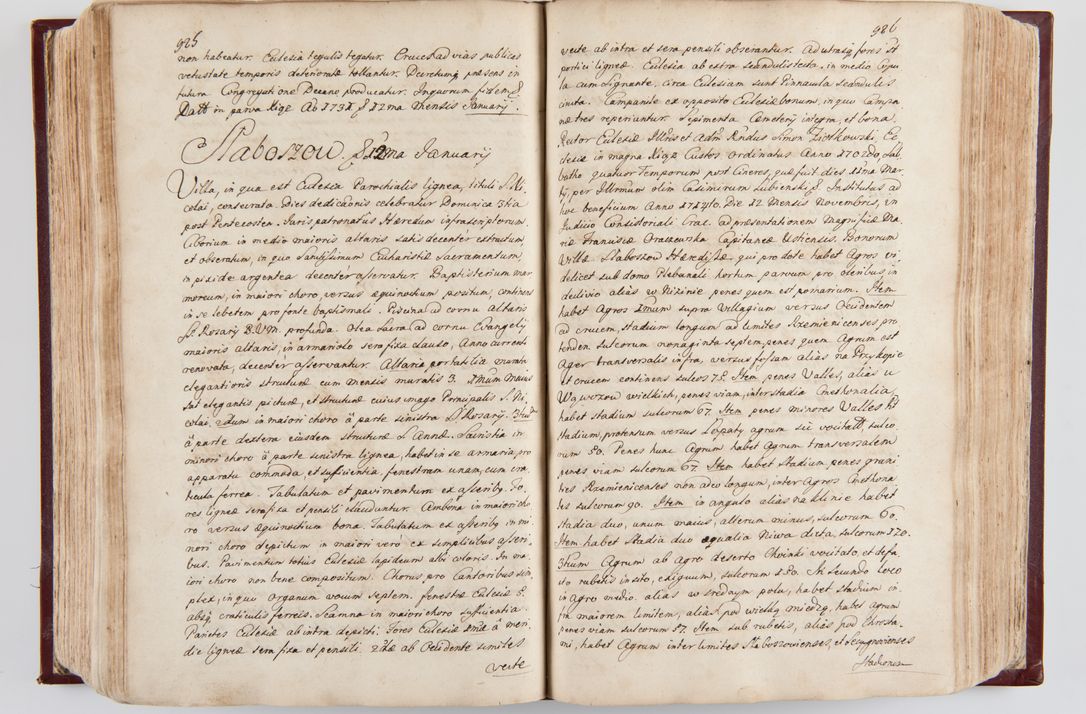 925
non habeatur. Ecclesia tegulis tegatur. Cruces ad vias publicas
vetustate temporis deterioratæ tollantur. Decretumq præsens in
futura Congregatione Decano producatur. In quorum fidem &
Datt in parva Xięże Ao 1731 & 12ma Mensis Januarij.
Slaboszou. & 12ma Januarij
Villa, in qua est Ecclesia Parochialis lignea, tituli S. Ni
colai, consecrata. Dies dedicaõnis celebratur Dominica 3tia
post Pentecosten. Juris patronatus Hæredum infrascriptorum.
Ciborium in medio maioris altaris satis decenter extructum,
et obseratum, in quo Sanctissimum Eucharistiæ Sacramentum,
in pixide argentea decenter asservatur. Baptisterium mar
moreum, in maiori choro, versus æquinoctium positum, continens
in se lebetem pro fonte baptismali. Piscina ad cornu altaris
S. Rosarij B.V.M. profunda. Olea Sacra ad cornu Evangelij
maioris altaris, in armariolo sera fixa clauso, Anno currenti
renovata, decenter asservantur. Altaria portatilia munita
elegantioris structuræ cum mensis muratis 3. 1mum maius
sat elegantis picturæ, et structuræ cuius imago Principalis S. Ni
colai, 2dum in maiori choro â parte sinistra S. Rosarij. 3tium
â parte dextera eiusdem structuræ S. Annæ. Sacristia in
minori choro â parte sinistra lignea, habet in se armaria, pro
apparatu commoda, et sufficientia, fenestram unam, cum cra
ticula ferrea. Tabulatum et pavimentum ex asserib9. Fo
res ligneæ sera fixa et pensili clauduntur. Ambona in maiori cho
ro versus æquinoctium bona. Tabulatum ex asserib9 in mi
nori choro depictum in maiori verò ex simplicibus asseri
bus. Pavimentum totius Ecclesiæ lapideum albi coloris. In ma
iori choro non bene compositum. Chorus pro Cantoribus sim
plex, in quo organum vocum septem. fenestræ Ecclesiæ 5.
absq craticulis ferreis. Scamna in maiori choro sufficientia.
Parietes Ecclesiæ ab intra depicti. Fores Ecclesiæ 1mæ â meri
die ligneæ sera fixa et pensili. 2dæ ab Occidente similes
recte
926
recte ab intra et sera pensili obserantur. Ad utrasq fores st
portici ligneæ. Ecclesia ab extra scandulis tecta. in medio Cupu
la cum Signante. Circa Ecclesiam sunt Pinnacula Scandulis
cincta. Campanile ex opposito Ecclesiæ bonum, in quo Campa
næ tres reperiuntur. Sepimenta Cæmeterij integra, et bona.
Rector Ecclesiæ Illris et Adm Rndus Simon Ziołkowski, Ec
clesiæ in magna Xięże Custos ordinatus Anno 1702do, Sab
batho quatuor Temporum post Cineres, quæ fuit dies 11ma Mar
tij, per Illrmum olim Casimirum Łubienski. & Institutus ad
hoc beneficium Anno 1717mo. Die 12 Mensis Novembris, in
Judicio Consistoriali Crac. ad præsentationem Magnificæ Ma
riæ Franciscæ Oraczewska Capitaneæ Ustiensis. Bonorum
Villæ Slaboszow Hæredissæ, qui pro dote habet Agros vi
delicet sub domo Plebanali hortum parvum pro oleribus, in
declivio aliàs w Nizinie penes quem est pomarium. Item
habet Agros 1mum supra villagium versus Occidentem
ad crucem, stadium longum ad limites Rzemienicenses, pro
tenden. sulcorum nonaginta septem, penes quem Agrum est
Ager transversalis infra, versus fossam aliàs na Przykopie
et crucem continens sulcos 75. Item penes Valles, aliàs u
Wąwozow wielkich, penes viam, inter stadia Cmethonalia,
habet stadium sulcorum 67. Item penes minores Valles ht
stadium, protensum versus Łopaty agrum sic vocitatt, sulco
rum 50. Penes hunc Agrum habet Agrum transversalem
penes viam sulcorum 67. Item habet Stadium penes grani
ties Rzemienicenses non adeo longum, inter Agros Cmethona
les sulcorum 90. Item in angulo aliàs na klinie habet
stadia duo, unum maius, alterum minus, sulcorum 60.
Item habet Stadia duo æqualia Niwa dicta, sulcorum 120.
3tium Agrum ab agro deserto Chwinki vocitato, et defa
cto rubetis insito, exiguum, sulcorum 150. In secundo loco
in agro medio. aliàs w srednym polu, habet Stadium in
fra maiorem limitem, aliàs pod wielką miedzą, habet agrum
penes viam sulcorum 57. Item sub rubetis, aliàs pod Chrosta
mi, habet Agrum inter limites Slaboszowienses, et
Stadiorum